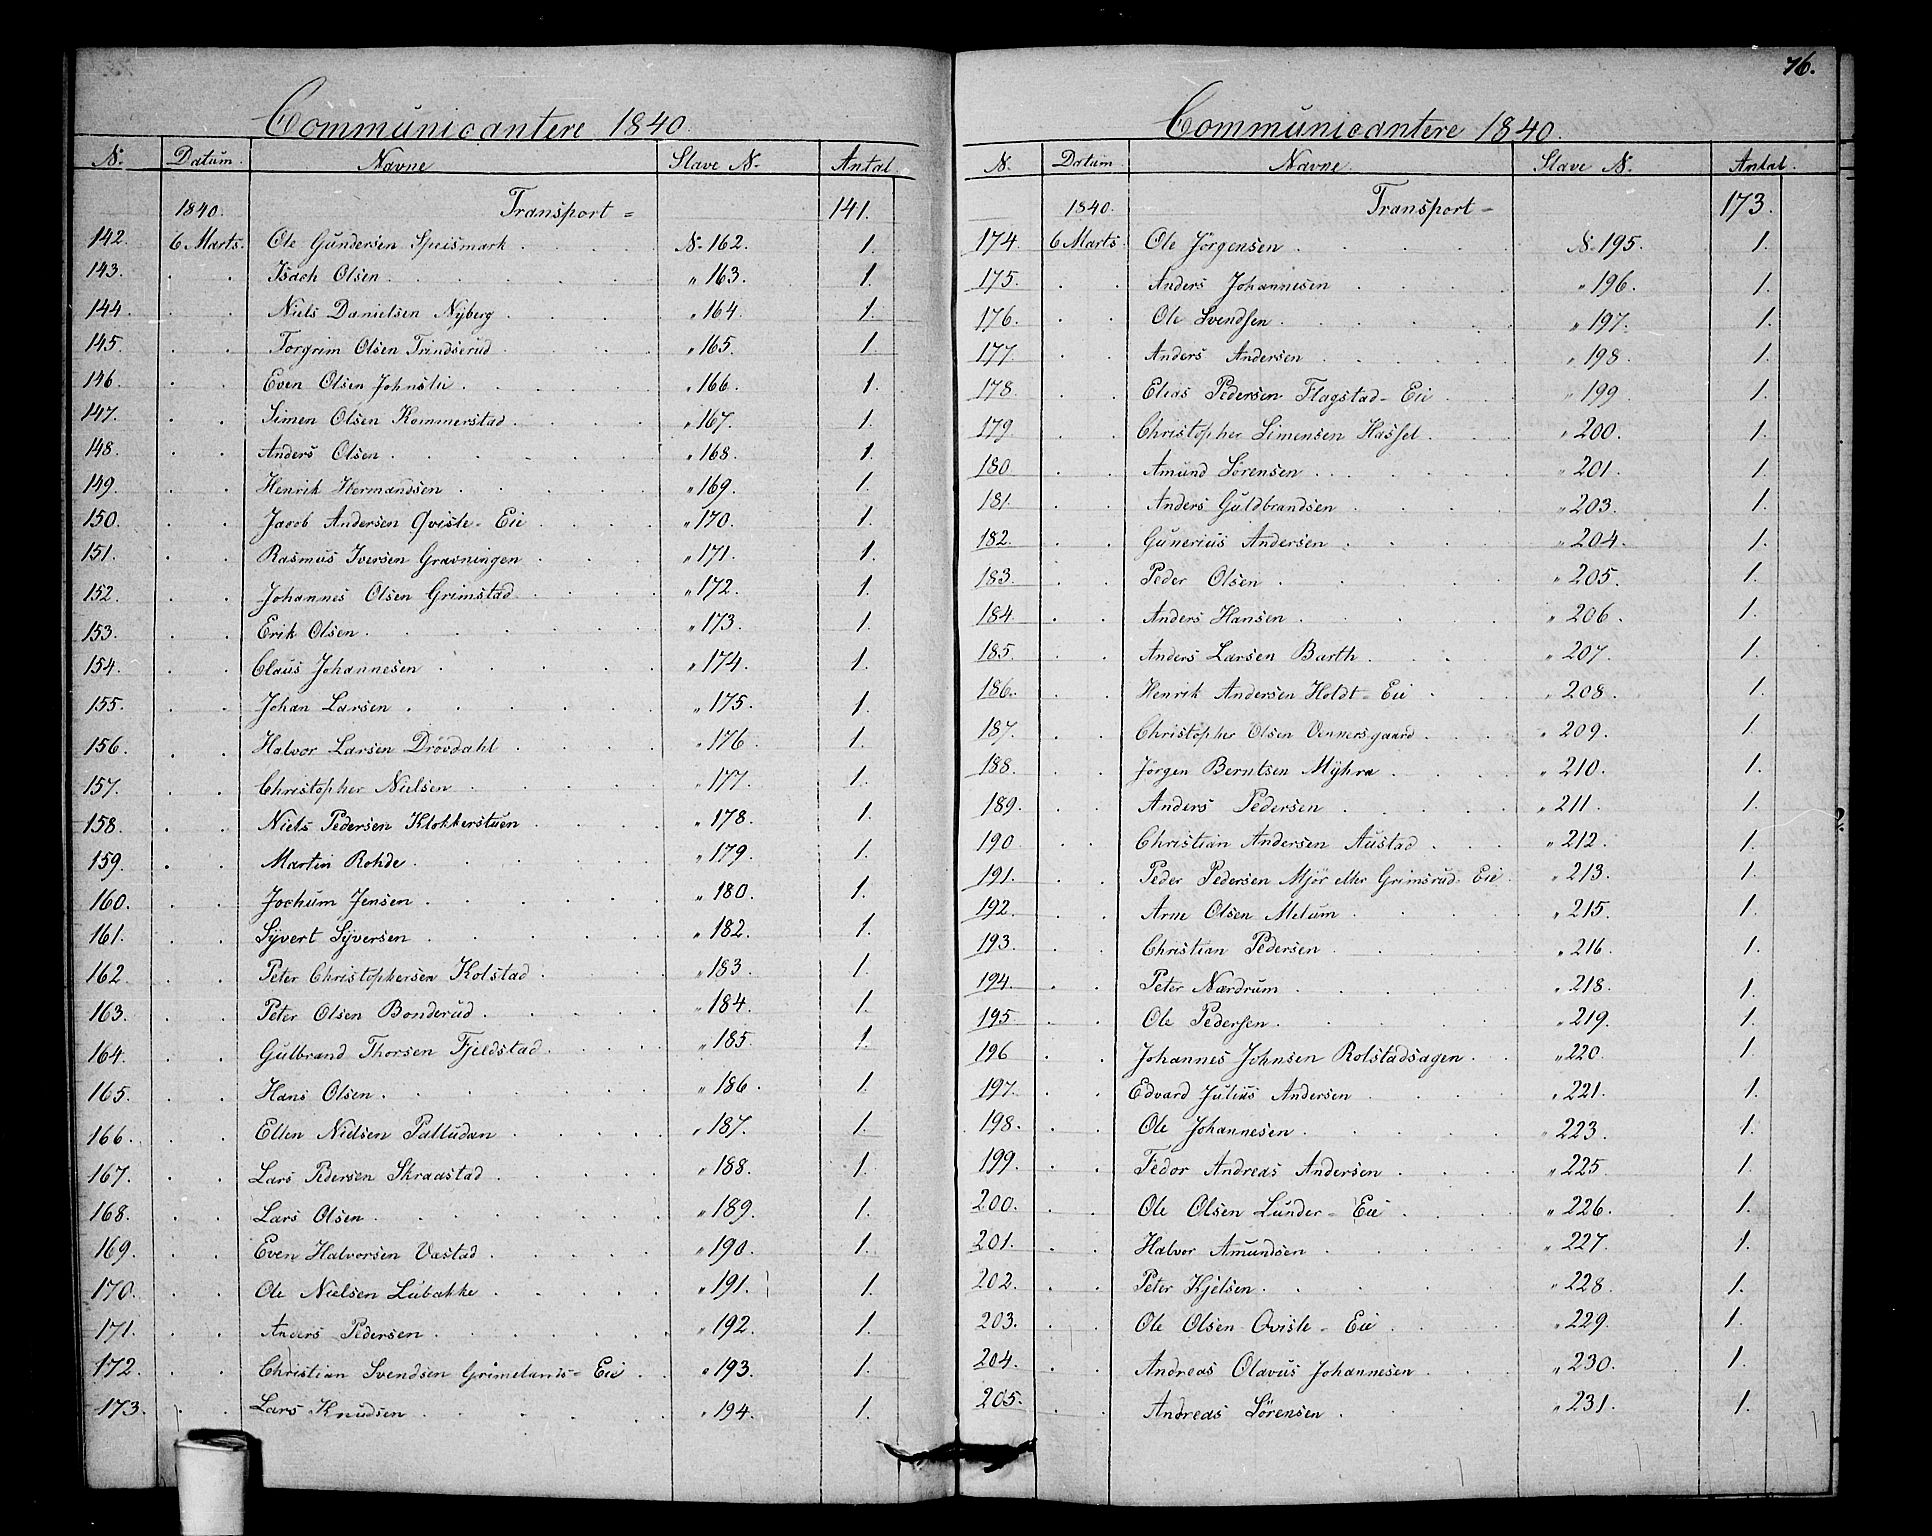 Communicantere 1840.
N. Datum. Navne Slave N. Antal.
1840. Transport = 141.
142. 6 Marts. Ole Gundersen Speismark N. 162. 1.
143. Isach Olsen " 163. 1.
144. Niels Danielsen Nyberg " 164. 1.
145. Torgrim Olsen Trindserud " 165. 1.
146. Even Olsen Johnslie " 166. 1.
147. Simen Olsen Kommerstad " 167. 1.
148. Anders Olsen " 168. 1.
149. Henrik Hermandsen " 169. 1.
150. Jacob Andersen Qviste-Eie " 170. 1.
151. Rasmus Iversen Gravningen " 171. 1.
152. Johannes Olsen Grimstad " 172. 1.
153. Erik Olsen " 173. 1.
154. Claus Johannesen " 174. 1.
155. Johan Larsen " 175. 1.
156. Halvor Larsen Drövdahl " 176. 1.
157. Christopher Nielsen " 177. 1.
158. Niels Pedersen Klokkerstuen " 178. 1.
159. Martin Rohde " 179. 1.
160. Jochum Jensen " 180. 1.
161. Syvert Syversen " 182. 1.
162 Peter Christophersen Kolstad " 183. 1.
163. Peter Olsen Bonderud " 184. 1.
164. Gulbrand Thorsen Fjeldstad " 185. 1.
165. Hans Olsen " 186. 1.
166. Ellen Nielsen Palludan " 187. 1.
167. Lars Pedersen Skraastad " 188. 1.
168. Lars Olsen " 189. 1.
169. Even Halvorsen Vastad " 190. 1.
170. Ole Nielsen Lubakke " 191. 1.
171. Anders Pedersen " 192. 1.
172. Christian Svendsen Grimelands-Eie " 193. 1.
173. Lars Knudsen " 194. 1.
76.
Communicantere 1840.
N. Datum. Navne. Slave N. Antal.
1840. Transport = 173.
174. 6 Marts. Ole Jörgensen N. 195. 1.
175. Anders Johannesen " 196. 1.
176. Ole Svendsen " 197. 1.
177. Anders Andersen " 198. 1.
178. Elias Pedersen Flagstad-Eie " 199 1.
179. Christopher Simensen Hassel " 200. 1.
180. Amund Sörensen " 201. 1.
181. Anders Guldbrandsen " 203. 1.
182. Gunerius Andersen " 204. 1.
183. Peder Olsen " 205. 1.
184. Anders Hansen " 206. 1.
185. Anders Larsen Barth " 207. 1.
186. Henrik Andersen Holdt-Eie " 208. 1.
187. Christopher Olsen Vennersgaard " 209. 1.
188. Jörgen Berntsen Myhra " 210. 1.
189. Anders Pedersen " 211. 1.
190 Christian Andersen Austad " 212. 1.
191. Peder Pedersen Mjör eller Grimsrud-Eie " 213. 1.
192. Arne Olsen Melum " 215. 1.
193. Christian Pedersen " 216. 1.
194. Peter Nærdrum " 218. 1.
195. Ole Pedersen " 219. 1.
196 Johannes Johnsen Rolstadsagen " 220. 1.
197. Edvard Julius Andersen " 221. 1.
198. Ole Johannesen " 223. 1.
199. Fedor Andreas Andersen " 225 1.
200. Ole Olsen Lunder-Eie " 226. 1.
201. Halvor Amundsen " 227. 1.
202. Peter Kjelsen " 228 1.
203. Ole Olsen Qviste-Eie " 229. 1.
204. Andreas Olavus Johannesen " 230. 1.
205. Andreas Sörensen " 231. 1.